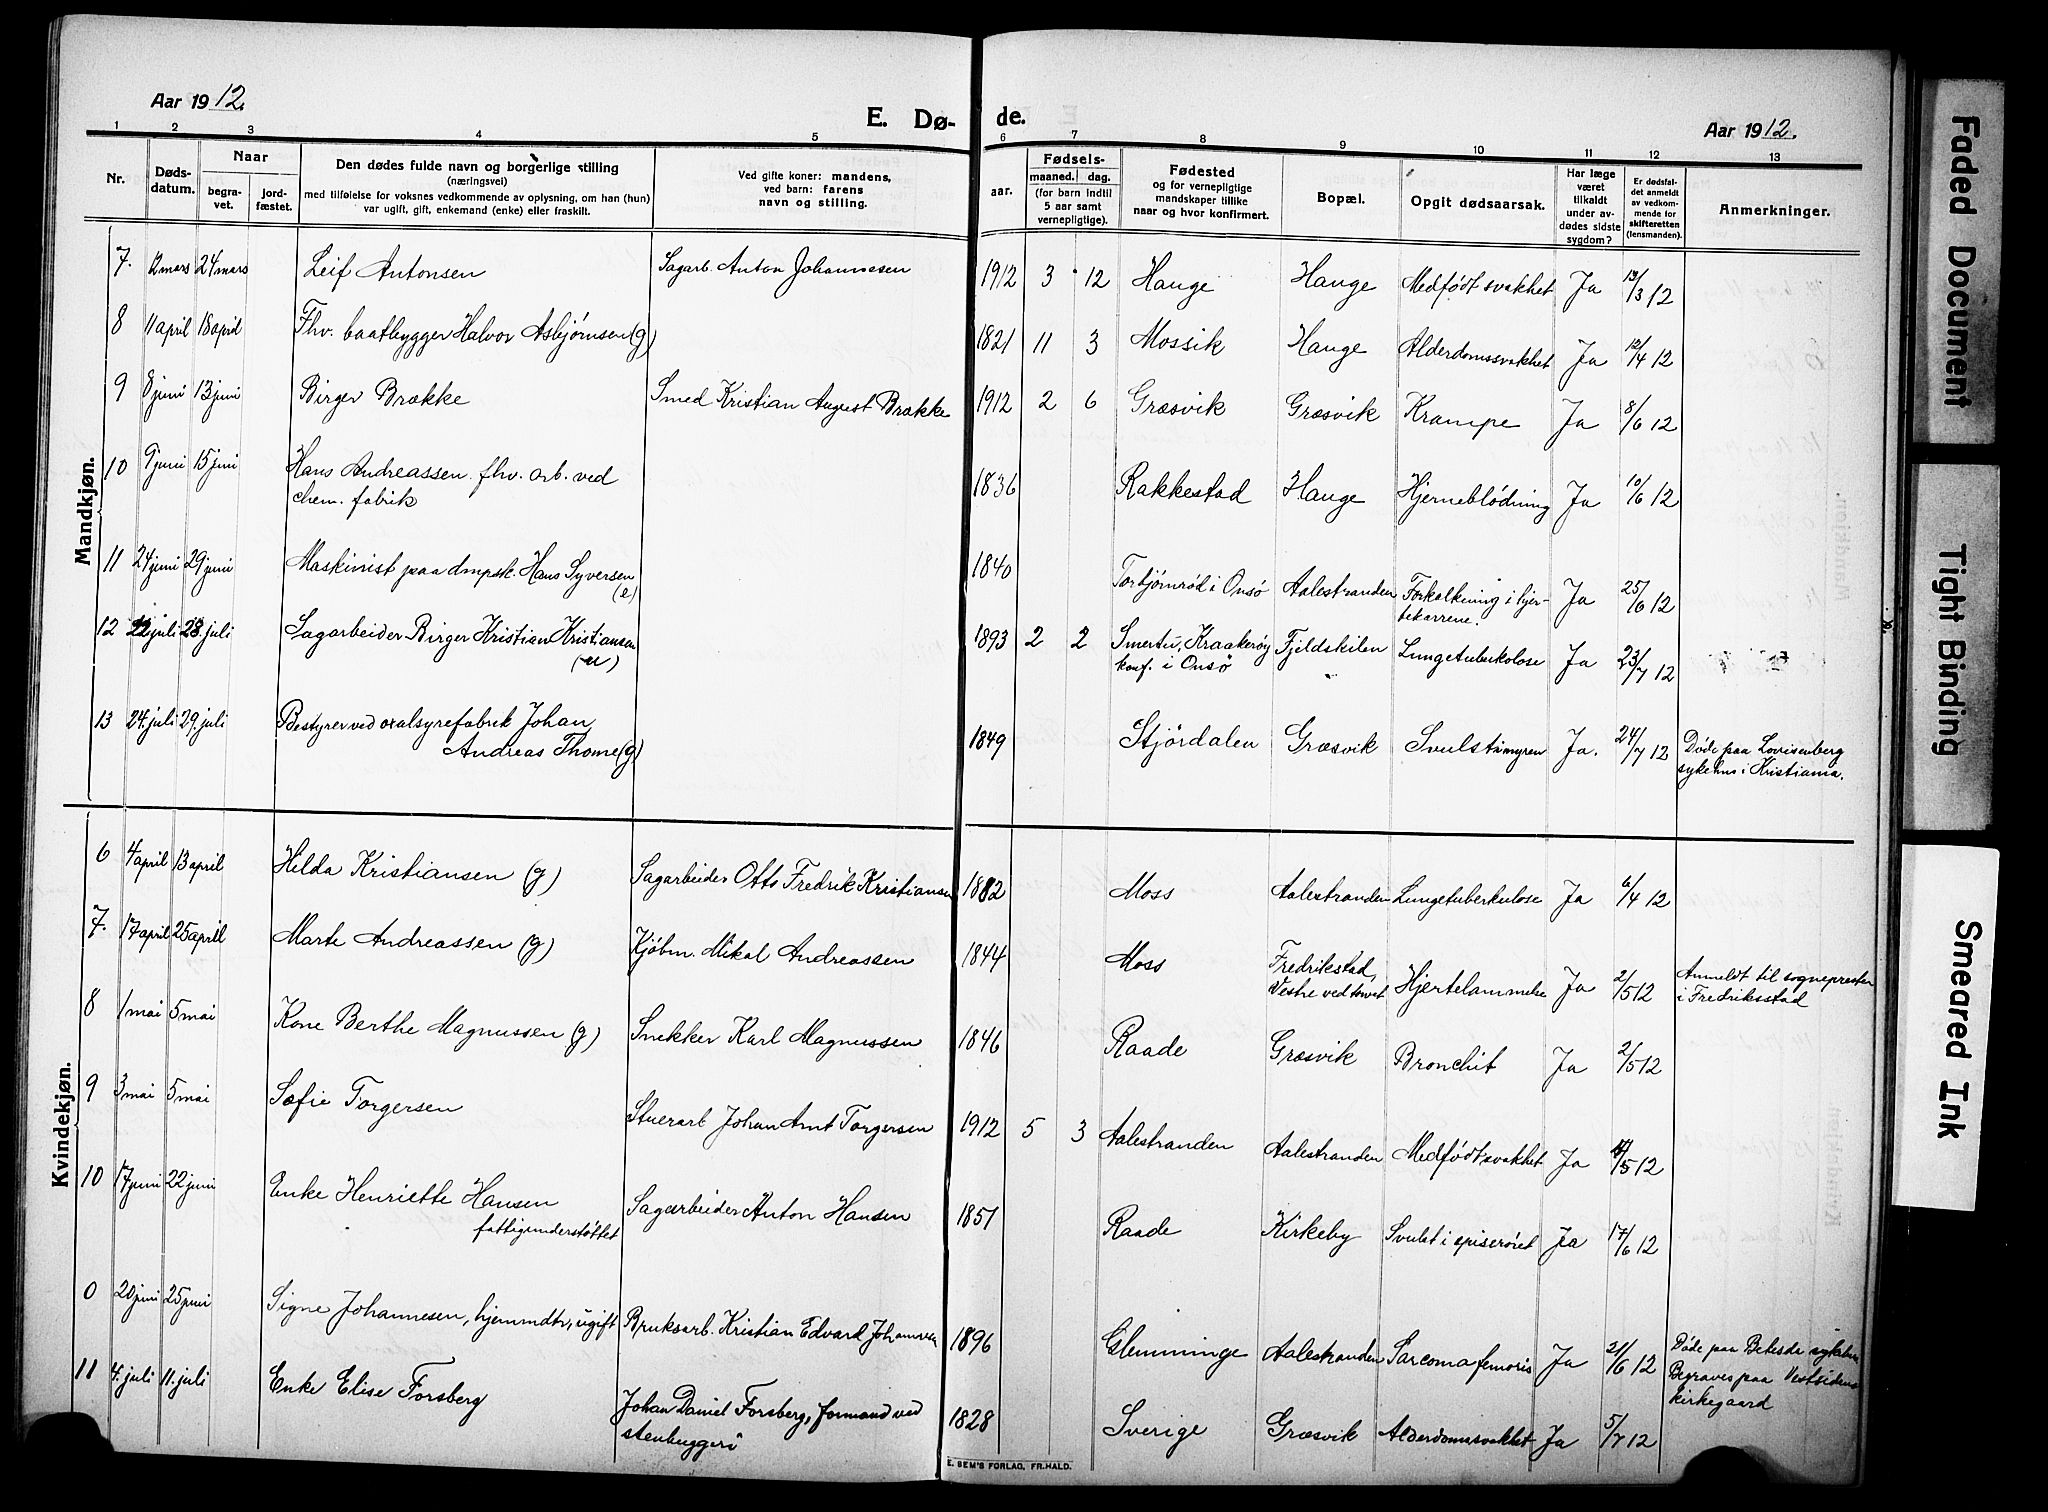 Aar 1912.
E. Dø-
de.
Aar 1912.
1 2 3 4 5 6 7 8 9 10 11 12 13
Nr.
Døds-
datum.
Naar
begra-
vet.
jord-
fæstet.
Den dødes fulde navn og borgerlige stilling
(næringsvei)
med tilføielse for voksnes vedkommende av oplysning, om han (hun)
var ugift, gift, enkemand (enke) eller fraskilt.
Ved gifte koner: mandens,
ved barn: farens
navn og stilling.
aar.
Fødsels-
maaned. dag.
(for barn indtil
5 aar samt
vernepligtige).
Fødested
og for vernepligtige
mandskaper tillike
naar og hvor konfirmert.
Bopæl.
Opgit dødsaarsak.
Har læge
været
tilkaldt
under av-
dødes sidste
sygdom?
Er dødsfal-
det anmeldt
av vedkom-
mende for
skifteretten
(lensmanden).
Anmerkninger.
Mandkjøn.
7. 12 mars 24 mars Leif Antonsen Sagarb. Anton Johannesen 1912 3 12 Hauge Hauge Medfødt svakhet Ja 13/3 12
8 11 april 18 april Fhv. baatbygger Halvor Asbjørnsen (g) 1821 11 3 Mossik Hauge Alderdomssvakhet Ja 12/4 12
9 8 juni 13 juni Birger Brække Smed Kristian August Brække 1912 2 6 Græsvik Græsvik Krampe Ja 8/6 12
10 9 juni 15 juni Hans Andreassen fhv. arb. ved
chem. fabrik 1836 Rakkestad Hauge Hjerneblødning Ja 10/6 12
11 24 juni 29 juni Maskinist paa dmpsk. Hans Syversen
(e) 1840 Torbjørnrød i Onsø Aalestranden Forkalkning i hjer-
tekarrene. Ja 25/6 12
12 22 juli 28 juli Sagarbeider Birger Kristian Kristiansen
(u) 1893 2 2 Smertu, Kraakerøy
konf. i Onsø Fjeldskilen Lungetuberkolose Ja 23/7 12
13 24. juli 29. juli Bestyrer ved oxalsyrefabrik Johan
Andreas Thome (g) 1849 Stjørdalen Græsvik Svulst i nyren Ja. 24/7 12 Døde paa Lovisenberg
sykehus i Kristiania.
Kvindekjøn.
6 4 april 13 april Hilda Kristiansen (g) Sagarbeider Otto Fredrik Kristiansen 1882 Moss Aalestranden Lungetuberkulose Ja 6/4 12
7. 17 april 25 april Marte Andreassen (g) Kjøbm. Mikal Andreassen 1844 Moss Fredrikstad,
Vestre ved torvet Hjertelammelse Ja 2/5 12 Anmeldt til sogneprester
i Fredriksstad
8 1 mai 5 mai Kone Berthe Magnussen (g) Snekker Karl Magnussen 1846 Raade Græsvik Bronchit Ja 2/5 12
9 3 mai 5 mai Sofie Torgersen Stuerarb Johan Arnt Torgersen 1912 5 3 Aalestranden Aalestranden Medfødt svakhet Ja /5 12
10 17 juni 22 juni Enke Henriette Hansen
fattigunderstøttet Sagarbeider Anton Hansen 1851 Raade Kirkeby Svulst i spiserøret Ja 17/6 12
0 20 juni 25 juni Signe Johannesen, hjemmdtr, ugift Bruksarb. Kristian Edvard Johannesen 1896 Glemminge Aalestranden Sarcoma femoris Ja 21/6 12 Døde paa Betesda sykehus
Begraves paa Vestsidens
kirkegaard
11 4. juli 11. juli Enke Elise Forsberg Johan Daniel Forsberg, formand ved
stenhuggeri 1828 Sverige Græsvik Alderdomssvakhet Ja 5/7 12
E. SEM'S FORLAG, FR.HALD.
Faded Document
Tight Binding
Smeared Ink